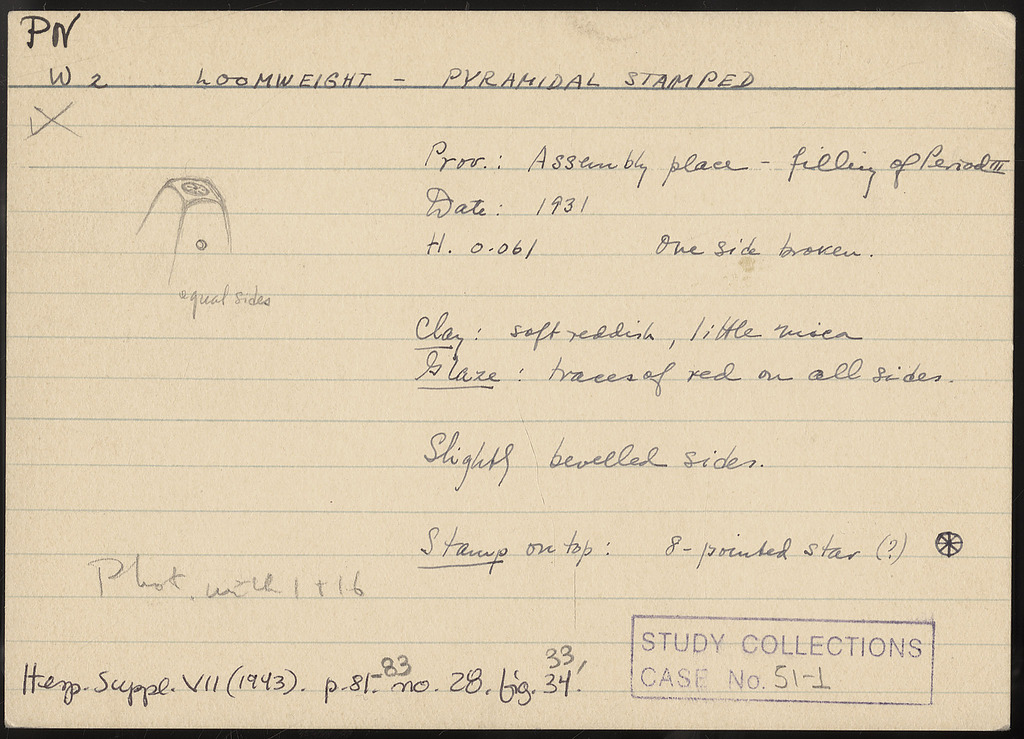 PN
W 2 LOOMWEIGHT - PYRAMIDAL STAMPED
Prov.: Assembly place - filling of Period III
Date: 1931
H. 0.061 One side broken.
equal sides
Clay: soft reddish, little mica
Glaze: traces of red on all sides.
Slightly bevelled sides.
Stamp on top: 8-pointed star (?)
Phot. with 1 + 16
Hesp. Suppl. VII (1943). p. 81-83 no. 28. fig. 33, 34.
STUDY COLLECTIONS
CASE No. 51-1